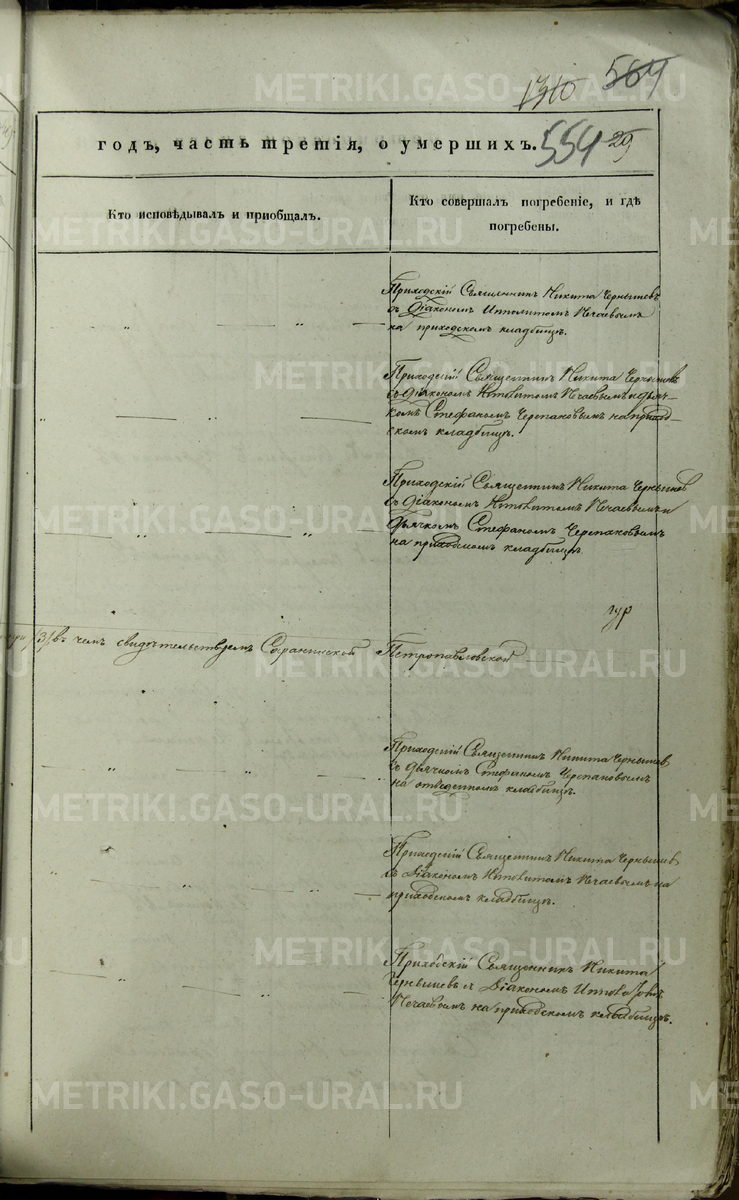 564
1310
годъ, часть третія, о умершихъ. 554 29
Кто исповѣдывалъ и приобщалъ.
Кто совершалъ погребеніе, и гдѣ
погребены.
Приходскій Священникъ Никита Чернышевъ
съ Діакономъ Ипполитомъ Нечаевымъ
на приходскомъ кладбищѣ.
Приходскій Священникъ Никита Чернышевъ
съ Діакономъ Ипполитомъ Нечаевымъ и дьяч-
комъ Стефаномъ Черепановымъ на приход-
скомъ кладбищѣ.
Приходскій Священникъ Никита Чернышев
съ Діакономъ Ипполитомъ Нечаевымъ и
дьячкомъ Стефаномъ Черепановымъ
на приходскомъ кладбищѣ.
3) въ чемъ свидѣтельствуемъ Саранинской Петропавловской
Приходскій Священникъ Никита Чернышев
съ дьячкомъ Стефаномъ Черепановымъ
на отведенномъ кладбищѣ.
Приходскій Священникъ Никита Чернышев
съ Діакономъ Ипполитомъ Нечаевымъ на
приходскомъ кладбищѣ.
Приходскій Священникъ Никита
Чернышевъ съ Діакономъ Ипполитомъ
Нечаевымъ на приходскомъ кладбищѣ.
METRIKI.GASO-URAL.RU